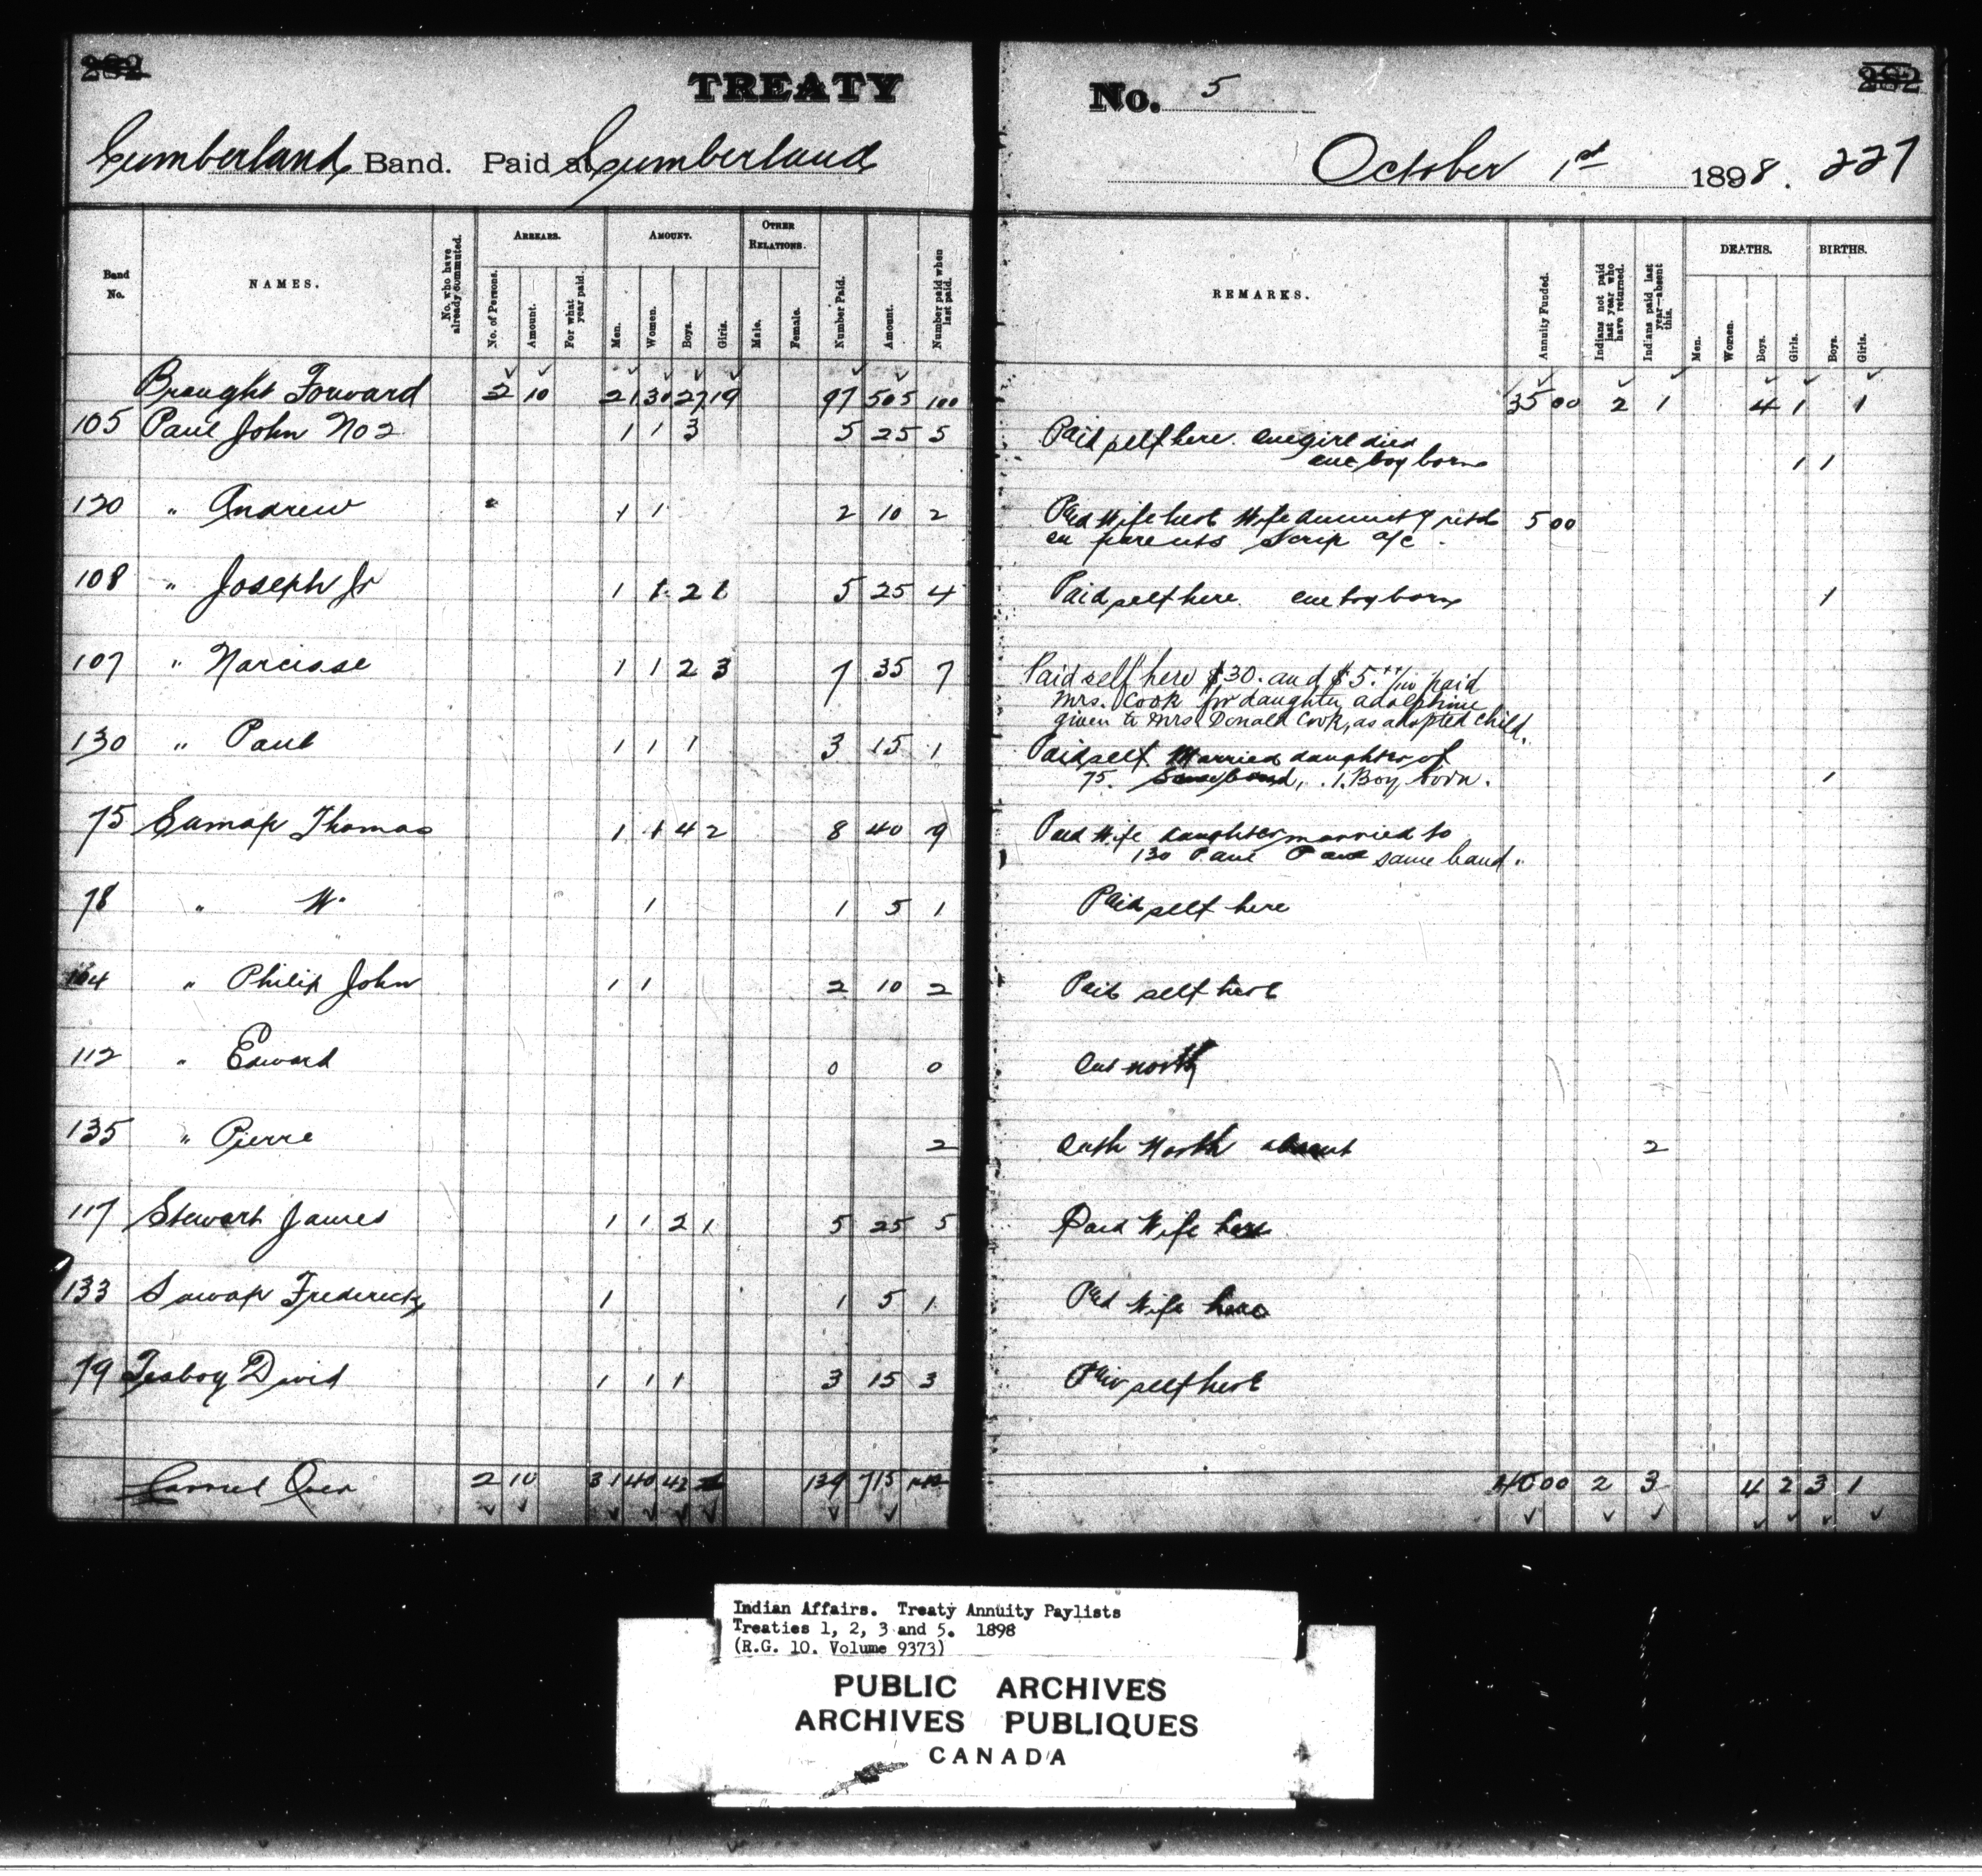 282
TREATY
No. 5
282
Cumberland Band. Paid at Cumberland
October 1st 1898. 227
Band No.
NAMES.
No. who have already commuted.
ARREARS.
No. of Persons.
Amount.
For what year paid.
AMOUNT.
Men.
Women.
Boys.
Girls.
OTHER RELATIONS.
Male.
Female.
Number Paid.
Amount.
Number paid when last paid.
REMARKS.
Annuity Funded.
Indians not paid last year who have returned.
Indians paid last year—absent this.
DEATHS.
Men.
Women.
Boys.
Girls.
BIRTHS.
Boys.
Girls.
Brought Forward 2 10 21 30 27 19 97 505 100 35 00 2 1 4 1 1
105 Paul John No 2 1 1 3 5 25 5 Paid self here. one girl died
one boy born 1 1
120 " Andrew 1 1 2 10 2 Paid Wife here Wife annuity 5 00
on parents Scrip a/c.
108 " Joseph Jr 1 1 2 1 5 25 4 Paid self here. one boy born 1
107 " Narcisse 1 1 2 3 7 35 7 Paid self here $30. and $5. paid
Mrs. Cook for daughter adolphine
given to Mrs Donald Cook, as adopted child.
130 " Paul 1 1 1 3 15 1 Paid self Married daughter of
75. Same band, 1. Boy born. 1
75 Thomas 1 1 4 2 8 40 9 Paid Wife daughter married to
130 Paul Paul same band.
78 " W. 1 1 5 1 Paid self here
104 " Philip John 1 1 2 10 2 Paid self here
112 " Edward 0 0 Out north
135 " Pierre 2 North absent 2
117 Stewart James 1 1 2 1 5 25 5 Paid Wife here
133 Frederick 1 1 5 1 Paid Wife here
79 David 1 1 1 3 15 3 Paid self here
Carried Over 2 10 31 40 42 139 715 40 00 2 3 4 2 3 1
Indian Affairs. Treaty Annuity Paylists
Treaties 1, 2, 3 and 5. 1898
(R.G. 10. Volume 9373)
PUBLIC ARCHIVES
ARCHIVES PUBLIQUES
CANADA